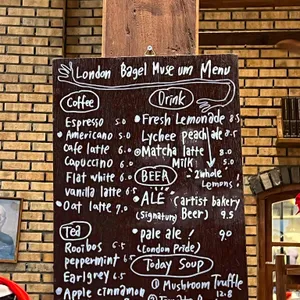 London Bagel Museum Menu
Coffee
Espresso 5.0
Americano 5.0
Cafe latte 6.0
Capuccino 6.0
Flat white 6.0
vanilla latte 6.5
Oat latte 7.0
Tea
Rooibos 6.5
peppermint 6.5
Earlgrey 6.5
Apple cinnamon
Drink
Fresh Lemonade 8.5
Lychee peach ale 8.5
Matcha latte 8.0
Milk 5.0
2whole Lemons!
BEER
ALE (artist bakery
(Signature) Beer) 9.5
pale ale! 9.0
(London Pride)
Today Soup
Mushroom Truffle
12.8